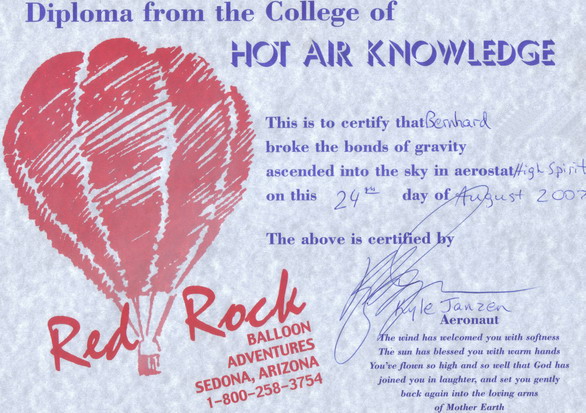 Diploma from the College of
HOT AIR KNOWLEDGE
This is to certify that Bernhard
broke the bonds of gravity
ascended into the sky in aerostat High Spirit
on this 24th day of August 2007
The above is certified by
Kyle Janzen
Aeronaut
Red Rock
BALLOON
ADVENTURES
SEDONA, ARIZONA
1-800-258-3754
The wind has welcomed you with softness
The sun has blessed you with warm hands
You've flown so high and so well that God has
joined you in laughter, and set you gently
back again into the loving arms
of Mother Earth